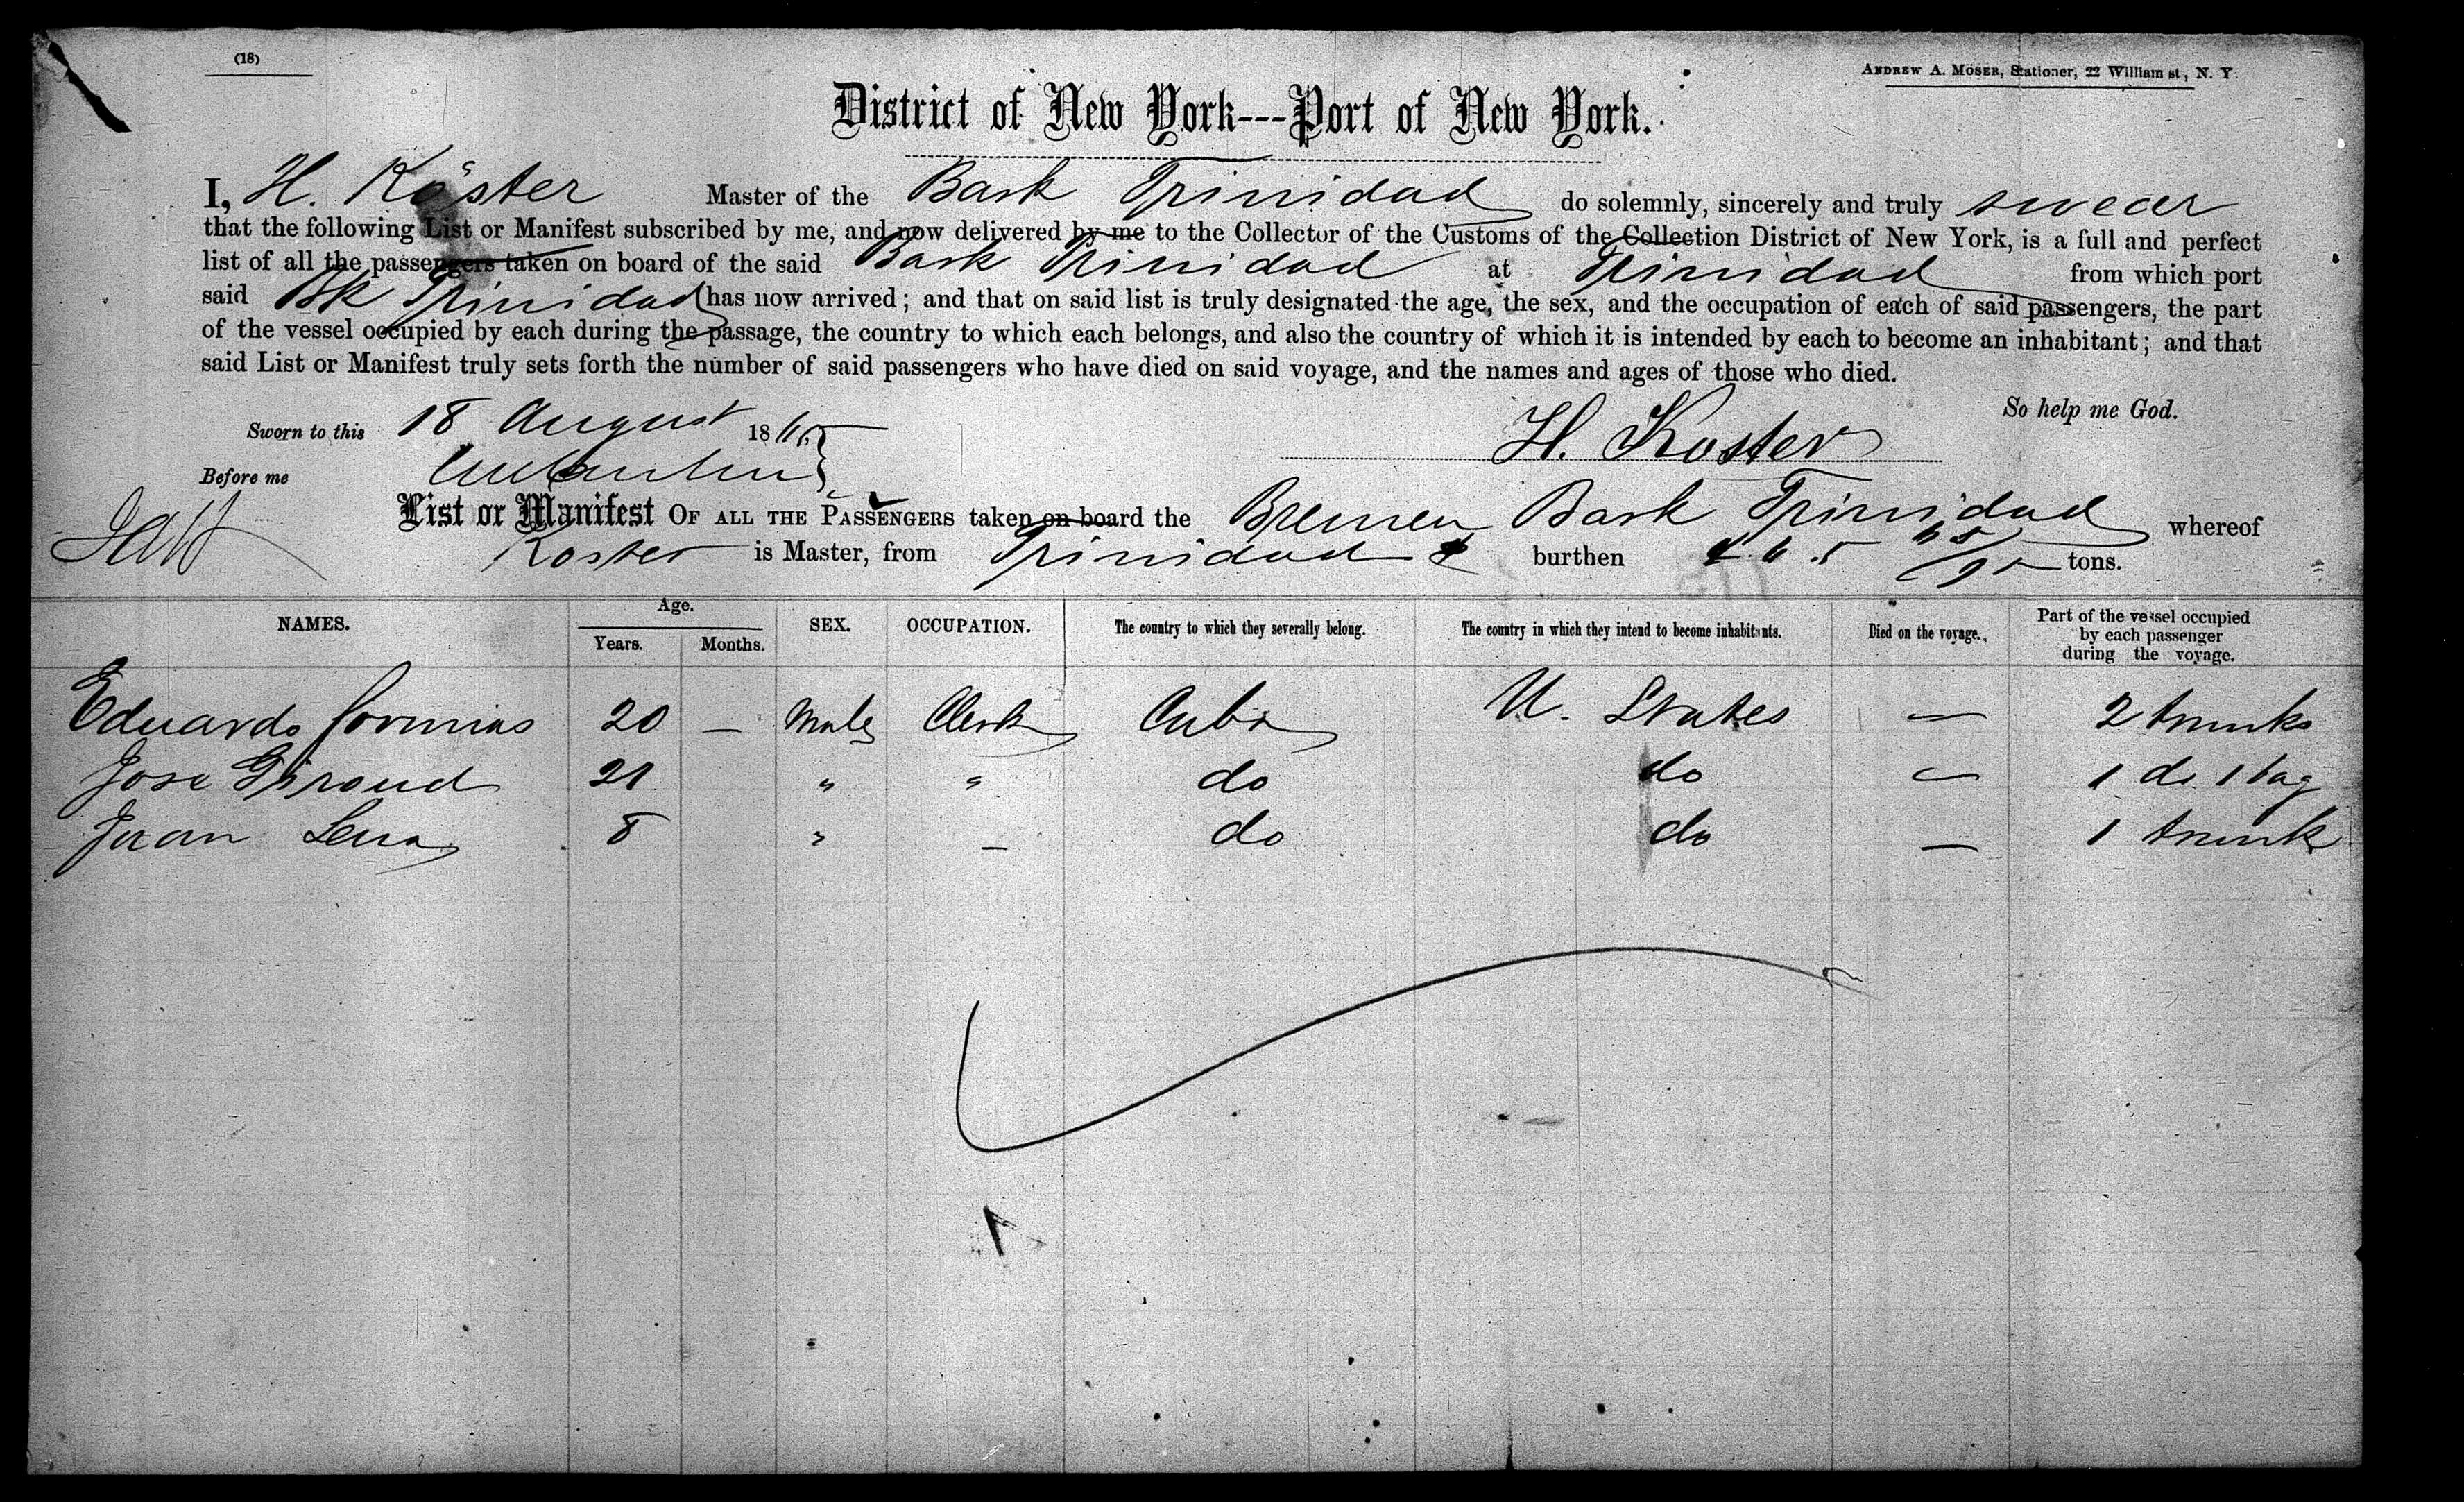 (18)
ANDREW A. MOSER, Stationer, 22 William st, N. Y.
District of New York---Port of New York.
I, H. Köster Master of the Bark Trinidad do solemnly, sincerely and truly swear
that the following List or Manifest subscribed by me, and now delivered by me to the Collector of the Customs of the Collection District of New York, is a full and perfect
list of all the passengers taken on board of the said Bark Trinidad at Trinidad from which port
said Bk Trinidad has now arrived; and that on said list is truly designated the age, the sex, and the occupation of each of said passengers, the part
of the vessel occupied by each during the passage, the country to which each belongs, and also the country of which it is intended by each to become an inhabitant; and that
said List or Manifest truly sets forth the number of said passengers who have died on said voyage, and the names and ages of those who died.
So help me God.
Sworn to this 18 August 18
H. Koster
Before me
List or Manifest OF ALL THE PASSENGERS taken on board the Bremen Bark Trinidad whereof
Koster is Master, from Trinidad burthen 465 tons.
NAMES. Age. Years. Months. SEX. OCCUPATION. The country to which they severally belong. The country in which they intend to become inhabitants. Died on the voyage. Part of the vessel occupied by each passenger during the voyage.
Eduardo 20 — Male Clerk Cuba U. States — 2 trunks
Jose Giroud 21 " " do do — 1 do. 1 bag
Juan Lena 8 " — do do — 1 trunk